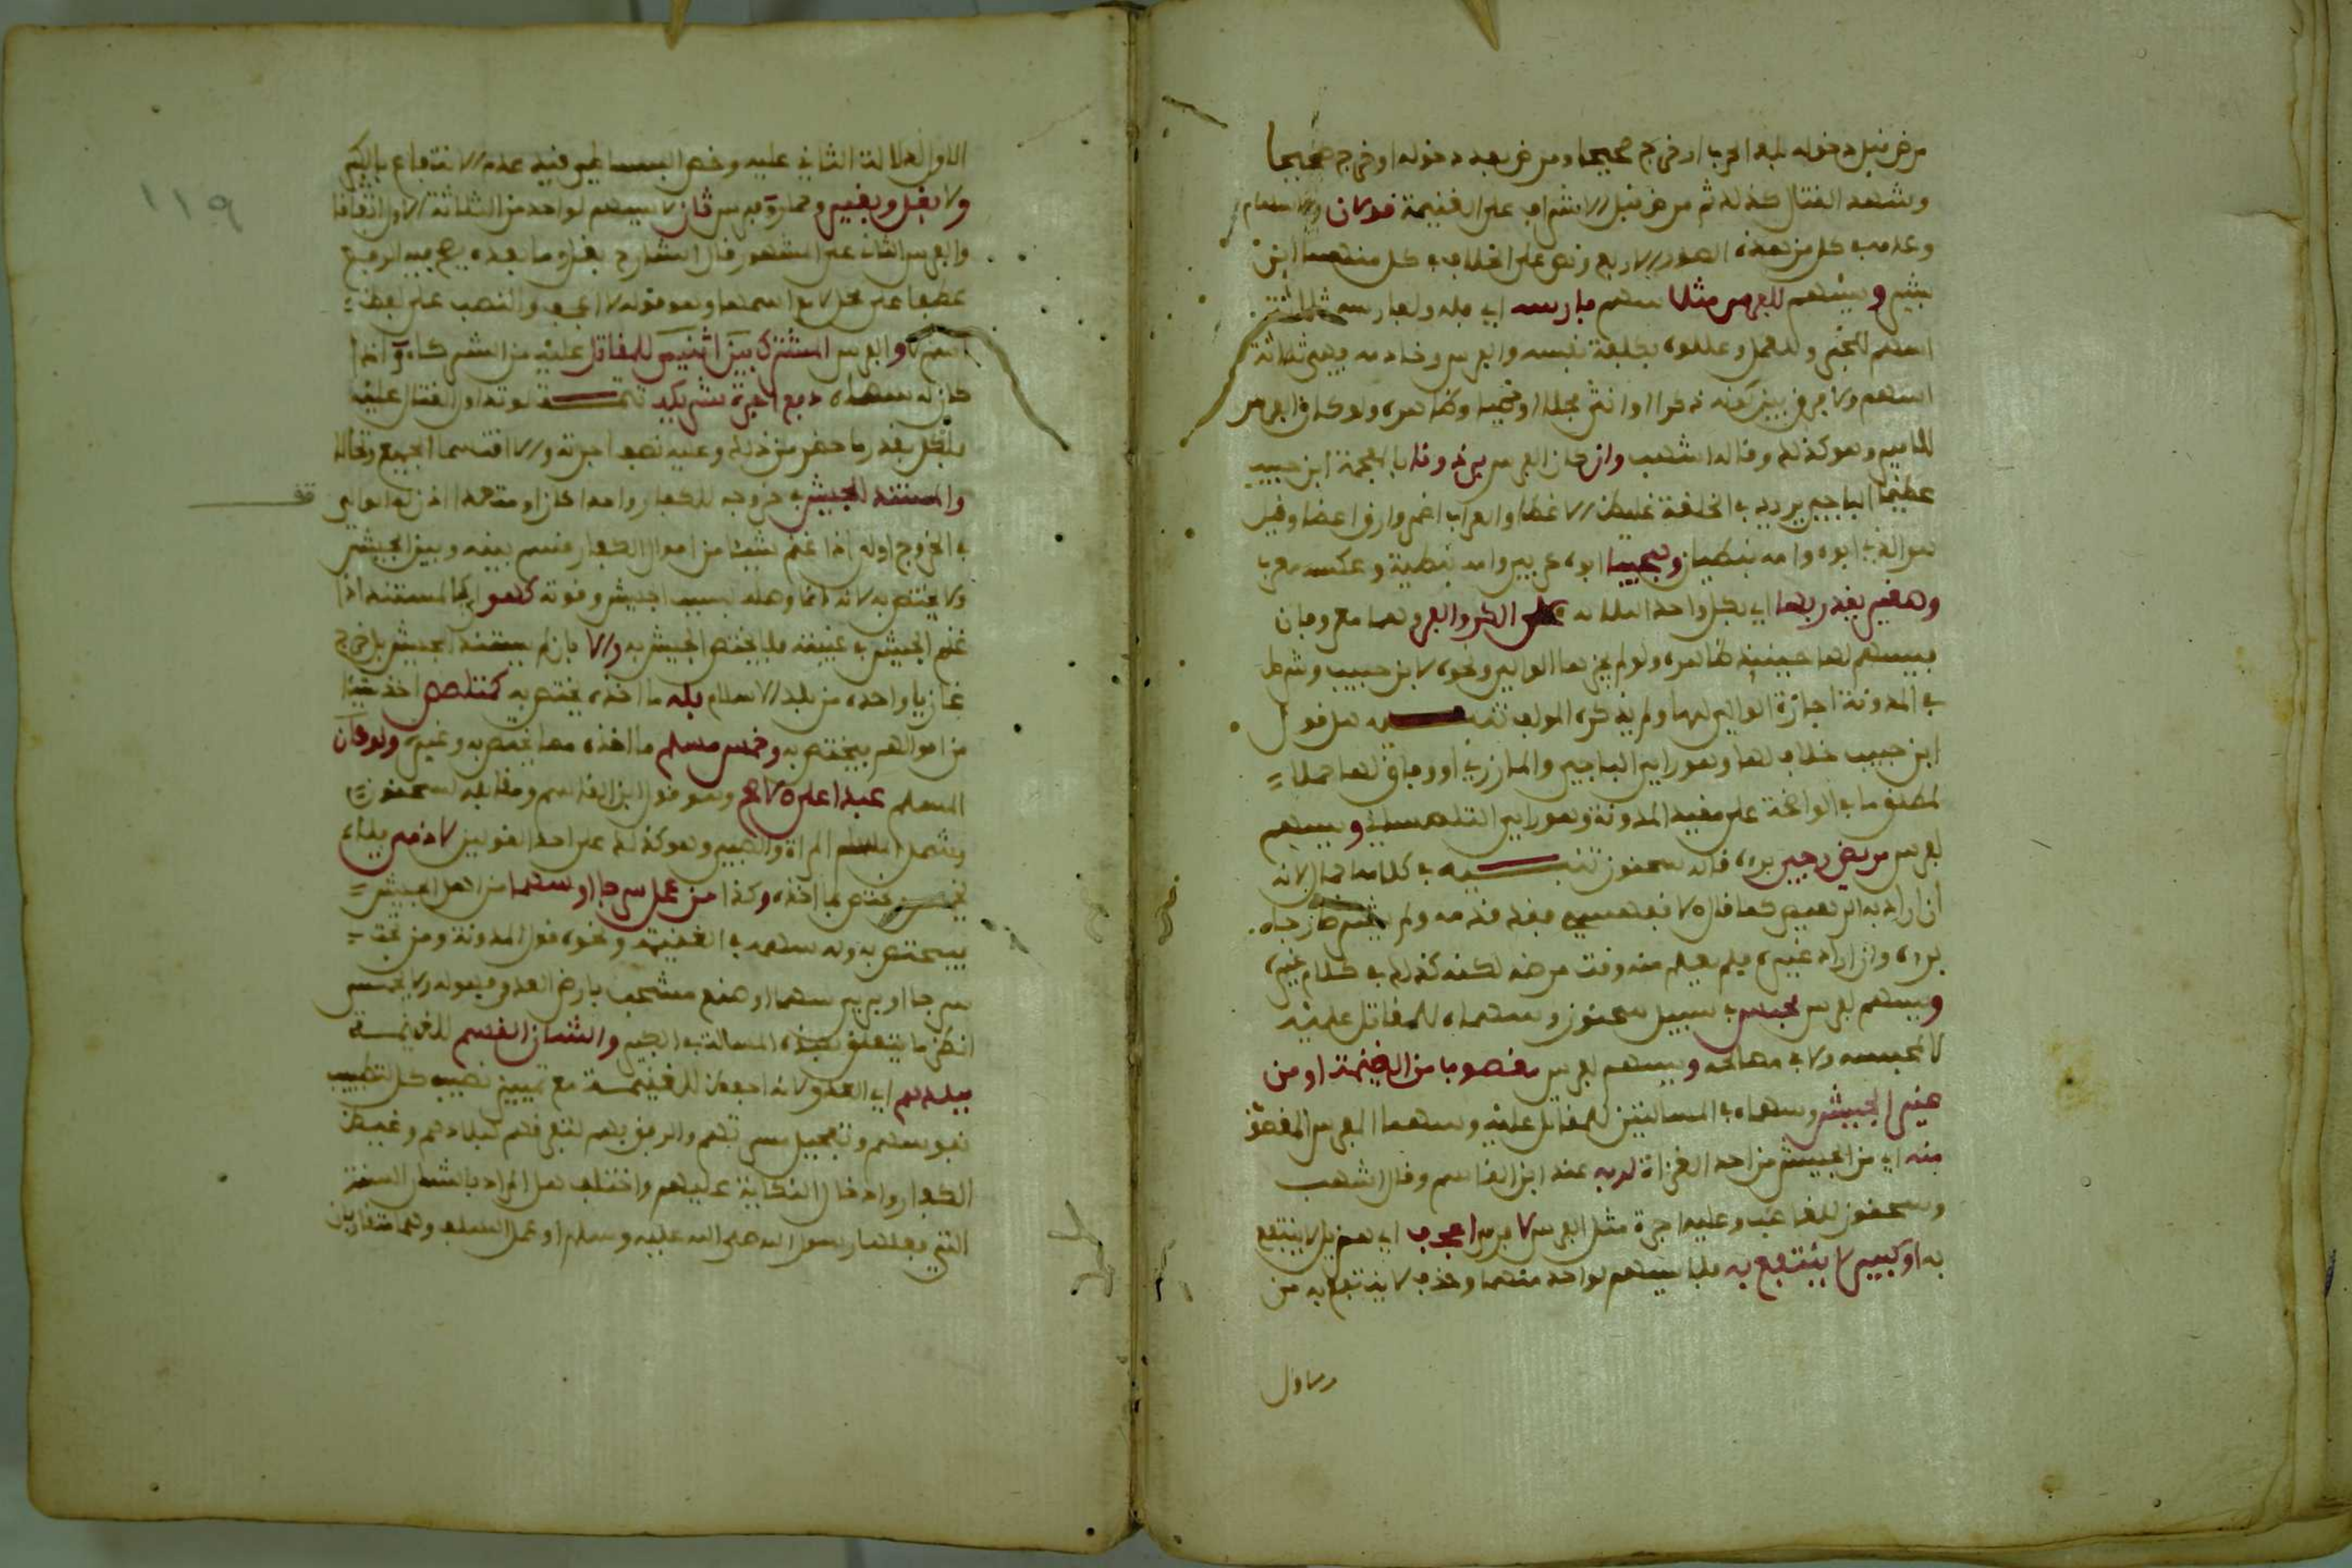 مرض قبل دخوله بلد الحرب او خرج صحيحا ومرض بعد دخوله او خرج صحيحا
وشهد القتال كذلك ثم مرض قبل الاشراف على الغنيمة قولان والاسهام
وعدمه في كل من هذه الصور الاربع ونص على الخلاف في كل منهما ابن
بشير ويسهم للفرس مثلا سهم فارسه اي فله ولفارسه ثلاثة
اسهم للخبر وللعمل وعللوه بكلفة نفسه والفرس وخادمه فهي ثلاثة
اسهم ولا فرق بين كونه ذكرا او انثى فحلا او خصيا وظاهره ولو كان الفرس
للغير وهو كذلك وقاله اشهب وان كان الفرس برذونا بالمعجمة ابن حبيب
عظيما الباجي يريد في الخلقة غليظ الاعضا والعراب اضمر وارق اعضا وقيل
هو الذي ابوه وامه نبطيان وهجينا ابوه عربي وامه نبطية وعكسه معرب
وصغير يقدر بها اي بكل واحد من الثلاثة على الكر والفر وهما معروفان
فيسهم لها حينئذ ظاهره ولو لم يجزها الوالي ونحوه لابن حبيب وشرط
في المدونة اجازة الوالي لها ولم يذكره المولف تنبيه هل قول
ابن حبيب خلاف لها وهو راي الباجي والمازري او وفاق لها حملا
لمطلق ما في الواضحة على مقيد المدونة وهو راي التلمساني ويسهم
لفرس مريض رجي برءه قاله سحنون تنبيه في كلامه اجمال لانه
ان اراد به الرهيص كما قال لا فهيص فقد قدمه ولم يقيده برجاء
برءه وان اراد غيره فلم يعلم منه وقت مرضه لكنه كذلك في كلام غيره
ويسهم لفرس محبس في سبيل سحنون وسهماه للمقاتل عليه
لا لمحبسه ولا في مصالحه ويسهم لفرس مغصوب من الغنيمة او من
غير الجيش وسهماه في المسالتين للمقاتل عليه وسهما الفرس المغصوب
منه اي من الجيش من احد الغزاة لربه عند ابن القاسم وقال اشهب
وسحنون للغاصب وعليه اجرة مثل الفرس لا فرس اعجف اي هزيل لا ينتفع
به او كبير لا ينتفع به فلا يسهم لواحد منهما وحذف لا ينتفع به من
من الاول
الاول لدلالة الثاني عليه وخص البساطي قيد عدم الانتفاع بالكبير
ولا بغل وبعير وحمار وفرس ثان لا يسهم لواحد من الثلاثة الاول اتفاقا
والفرس الثاني على المشهور قال الشارح بغل وما بعده يصح فيه الرفع
عطفا على محل لا مع اسمها وهو قوله لا اعجف والنصب على لفظ
اسم لا والفرس المشترك بين اثنين للمقاتل عليه من الشريكين واذا
كان له سهماه دفع اجرة شريكه تتمة لو تداولا القتال عليه
فلكل بقدر ما حضر من ذلك وعليه نصف اجرته والا اقتسما الجميع وتحاللا
والمستند للجيش في خروجه للكفار واحدا كان او متعددا اذن له الوالي
في الخروج اولا اذا غنم شيئا من اموال الكفار قسم بينه وبين الجيش
ولا يختص به لانه انما وصله بسبب الجيش وقوته كهو اي كالمستند اذا
غنم الجيش في غيبته فلا يختص الجيش به والا بان لم يستند للجيش بل خرج
غازيا وحده من بلد الاسلام فله ما اخذه يختص به كمتلصص اخذ شيئا
من اموالهم فيختص به وخمس مسلم ما اخذه مما يختص به وغيره ولو كان
المسلم عبدا على الاصح وهو قول ابن القاسم ومقابله لسحنون
وشمل المسلم المراة والصبي وهو كذلك على احد القولين لا ذمي فلا
يخمس ويختص بما اخذه وكذا من عمل سرجا او سهما من اهل الجيش
فيختص به وله سهمه في الغنيمة ونحوه قول المدونة ومن نحت
سرجا او برى سهما او صنع مشجبا بارض العدو فهو له ولا يخمس
انظر ما يتعلق بهذه المسالة في الكبير والشان القسم للغنيمة
ببلدهم اي العدو لانه احفظ للغنيمة مع تمييز نصيب كل لتطيب
نفوسهم وتعجيل مسرتهم والرفق بهم لتفرقهم لبلادهم وغيظ
الكفار وادخال النكاية عليهم واختلف هل المراد بالشان السنة
التي فعلها رسول الله صلى الله عليه وسلم او عمل السلف وهما متقاربان
قف
١١٩